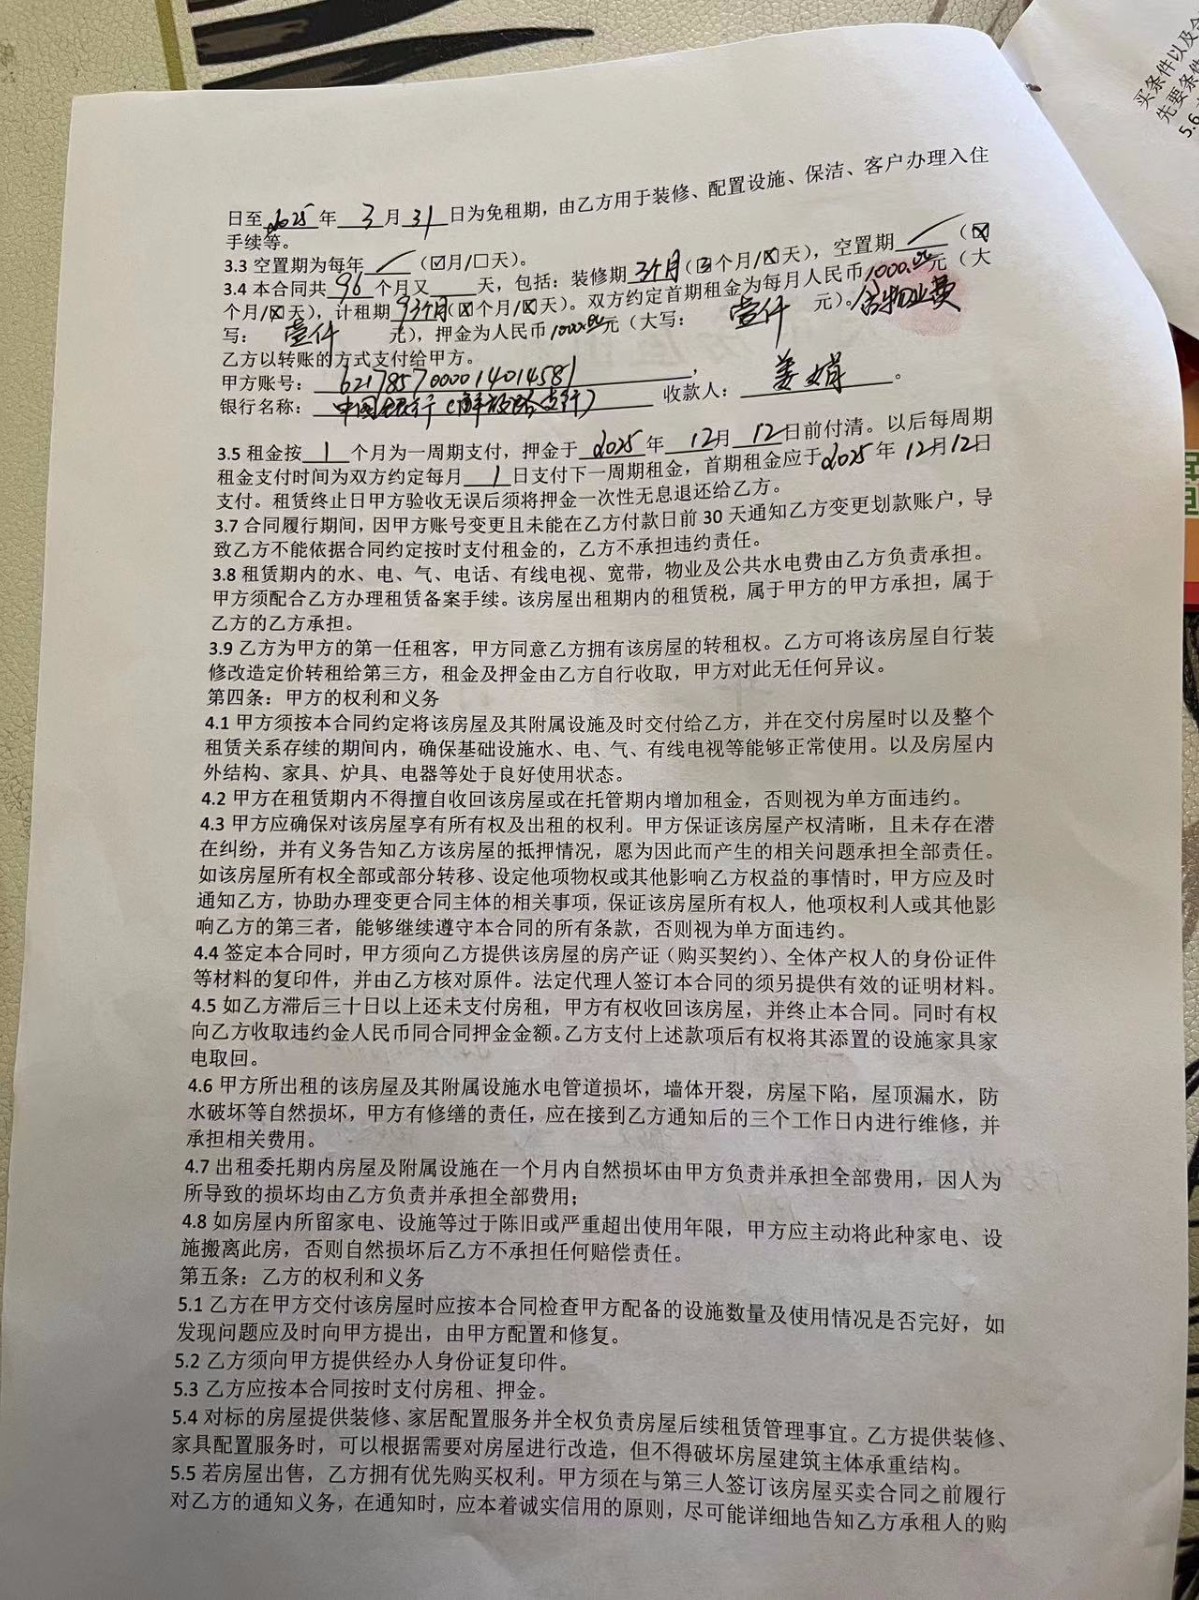 日至2025年3月31日为免租期，由乙方用于装修、配置设施、保洁、客户办理入住
手续等。
3.3 空置期为每年／（☑月/☐天）。
3.4 本合同共96个月又 天，包括：装修期3个月（☒个月/☒天），空置期／（☒
个月/☒天），计租期93个月（☒个月/☒天）。双方约定首期租金为每月人民币1000.00元（大
写：壹仟 元），押金为人民币1000.00元（大写：壹仟 元）。含物业费
乙方以转账的方式支付给甲方。
甲方账号：6217857000014014581，
银行名称：中国银行（解放路支行） 收款人：姜娟。
3.5 租金按1个月为一周期支付，押金于2025年12月12日前付清。以后每周期
租金支付时间为双方约定每月1日支付下一周期租金，首期租金应于2025年12月12日
支付。租赁终止日甲方验收无误后须将押金一次性无息退还给乙方。
3.7 合同履行期间，因甲方账号变更且未能在乙方付款日前 30 天通知乙方变更划款账户，导
致乙方不能依据合同约定按时支付租金的，乙方不承担违约责任。
3.8 租赁期内的水、电、气、电话、有线电视、宽带，物业及公共水电费由乙方负责承担。
甲方须配合乙方办理租赁备案手续。该房屋出租期内的租赁税，属于甲方的甲方承担，属于
乙方的乙方承担。
3.9 乙方为甲方的第一任租客，甲方同意乙方拥有该房屋的转租权。乙方可将该房屋自行装
修改造定价转租给第三方，租金及押金由乙方自行收取，甲方对此无任何异议。
第四条：甲方的权利和义务
4.1 甲方须按本合同约定将该房屋及其附属设施及时交付给乙方，并在交付房屋时以及整个
租赁关系存续的期间内，确保基础设施水、电、气、有线电视等能够正常使用。以及房屋内
外结构、家具、炉具、电器等处于良好使用状态。
4.2 甲方在租赁期内不得擅自收回该房屋或在托管期内增加租金，否则视为单方面违约。
4.3 甲方应确保对该房屋享有所有权及出租的权利。甲方保证该房屋产权清晰，且未存在潜
在纠纷，并有义务告知乙方该房屋的抵押情况，愿为因此而产生的相关问题承担全部责任。
如该房屋所有权全部或部分转移、设定他项物权或其他影响乙方权益的事情时，甲方应及时
通知乙方，协助办理变更合同主体的相关事项，保证该房屋所有权人，他项权利人或其他影
响乙方的第三者，能够继续遵守本合同的所有条款，否则视为单方面违约。
4.4 签定本合同时，甲方须向乙方提供该房屋的房产证（购买契约）、全体产权人的身份证件
等材料的复印件，并由乙方核对原件。法定代理人签订本合同的须另提供有效的证明材料。
4.5 如乙方滞后三十日以上还未支付房租，甲方有权收回该房屋，并终止本合同。同时有权
向乙方收取违约金人民币同合同押金金额。乙方支付上述款项后有权将其添置的设施家具家
电取回。
4.6 甲方所出租的该房屋及其附属设施水电管道损坏，墙体开裂，房屋下陷，屋顶漏水，防
水破坏等自然损坏，甲方有修缮的责任，应在接到乙方通知后的三个工作日内进行维修，并
承担相关费用。
4.7 出租委托期内房屋及附属设施在一个月内自然损坏由甲方负责并承担全部费用，因人为
所导致的损坏均由乙方负责并承担全部费用；
4.8 如房屋内所留家电、设施等过于陈旧或严重超出使用年限，甲方应主动将此种家电、设
施搬离此房，否则自然损坏后乙方不承担任何赔偿责任。
第五条：乙方的权利和义务
5.1 乙方在甲方交付该房屋时应按本合同检查甲方配备的设施数量及使用情况是否完好，如
发现问题应及时向甲方提出，由甲方配置和修复。
5.2 乙方须向甲方提供经办人身份证复印件。
5.3 乙方应按本合同按时支付房租、押金。
5.4 对标的房屋提供装修、家居配置服务并全权负责房屋后续租赁管理事宜。乙方提供装修、
家具配置服务时，可以根据需要对房屋进行改造，但不得破坏房屋建筑主体承重结构。
5.5 若房屋出售，乙方拥有优先购买权利。甲方须在与第三人签订该房屋买卖合同之前履行
对乙方的通知义务，在通知时，应本着诚实信用的原则，尽可能详细地告知乙方承租人的购
买条件以及
先要条
5.6